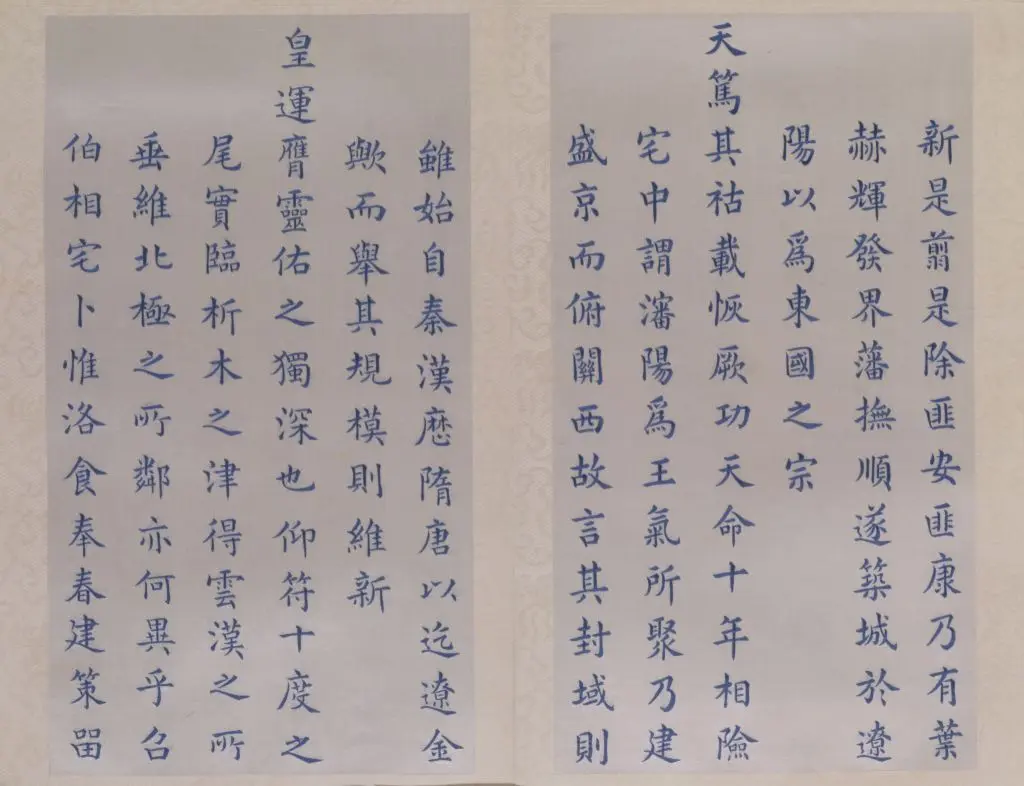 新是翦是除匪安匪康乃有葉
赫輝發界藩撫順遂築城於遼
陽以爲東國之宗
天篤其祜載恢厥功天命十年相險
宅中謂瀋陽爲王氣所聚乃建
盛京而俯關西故言其封域則
雖始自秦漢歴隋唐以迄遼金
歟而舉其規模則維新
皇運膺靈佑之獨深也仰符十度之
尾實臨析木之津得雲漢之所
垂維北極之所鄰亦何異乎召
伯相宅卜惟洛食奉春建策畱